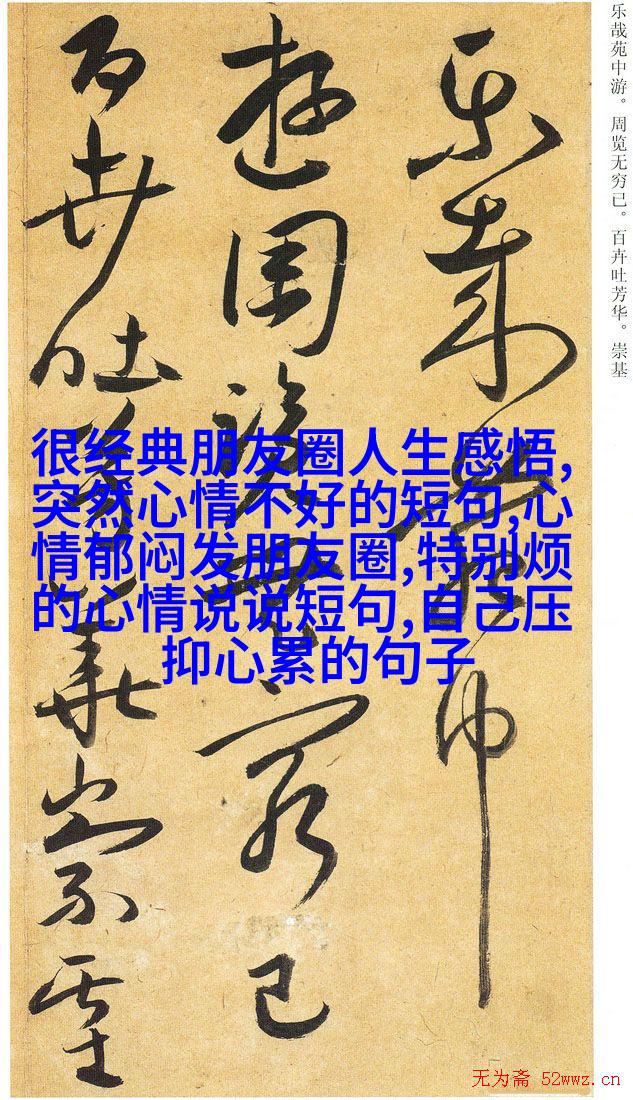 乐哉苑中游。周览无穷已。百卉吐芳华。崇基
樂哉苑中
遊周覽無窮已
百卉吐芳華崇基
很经典朋友圈人生感悟,
突然心情不好的短句,心
情郁闷发朋友圈,特别烦
的心情说说短句,自己压
抑心累的句子
无为斋 52wwz.cn